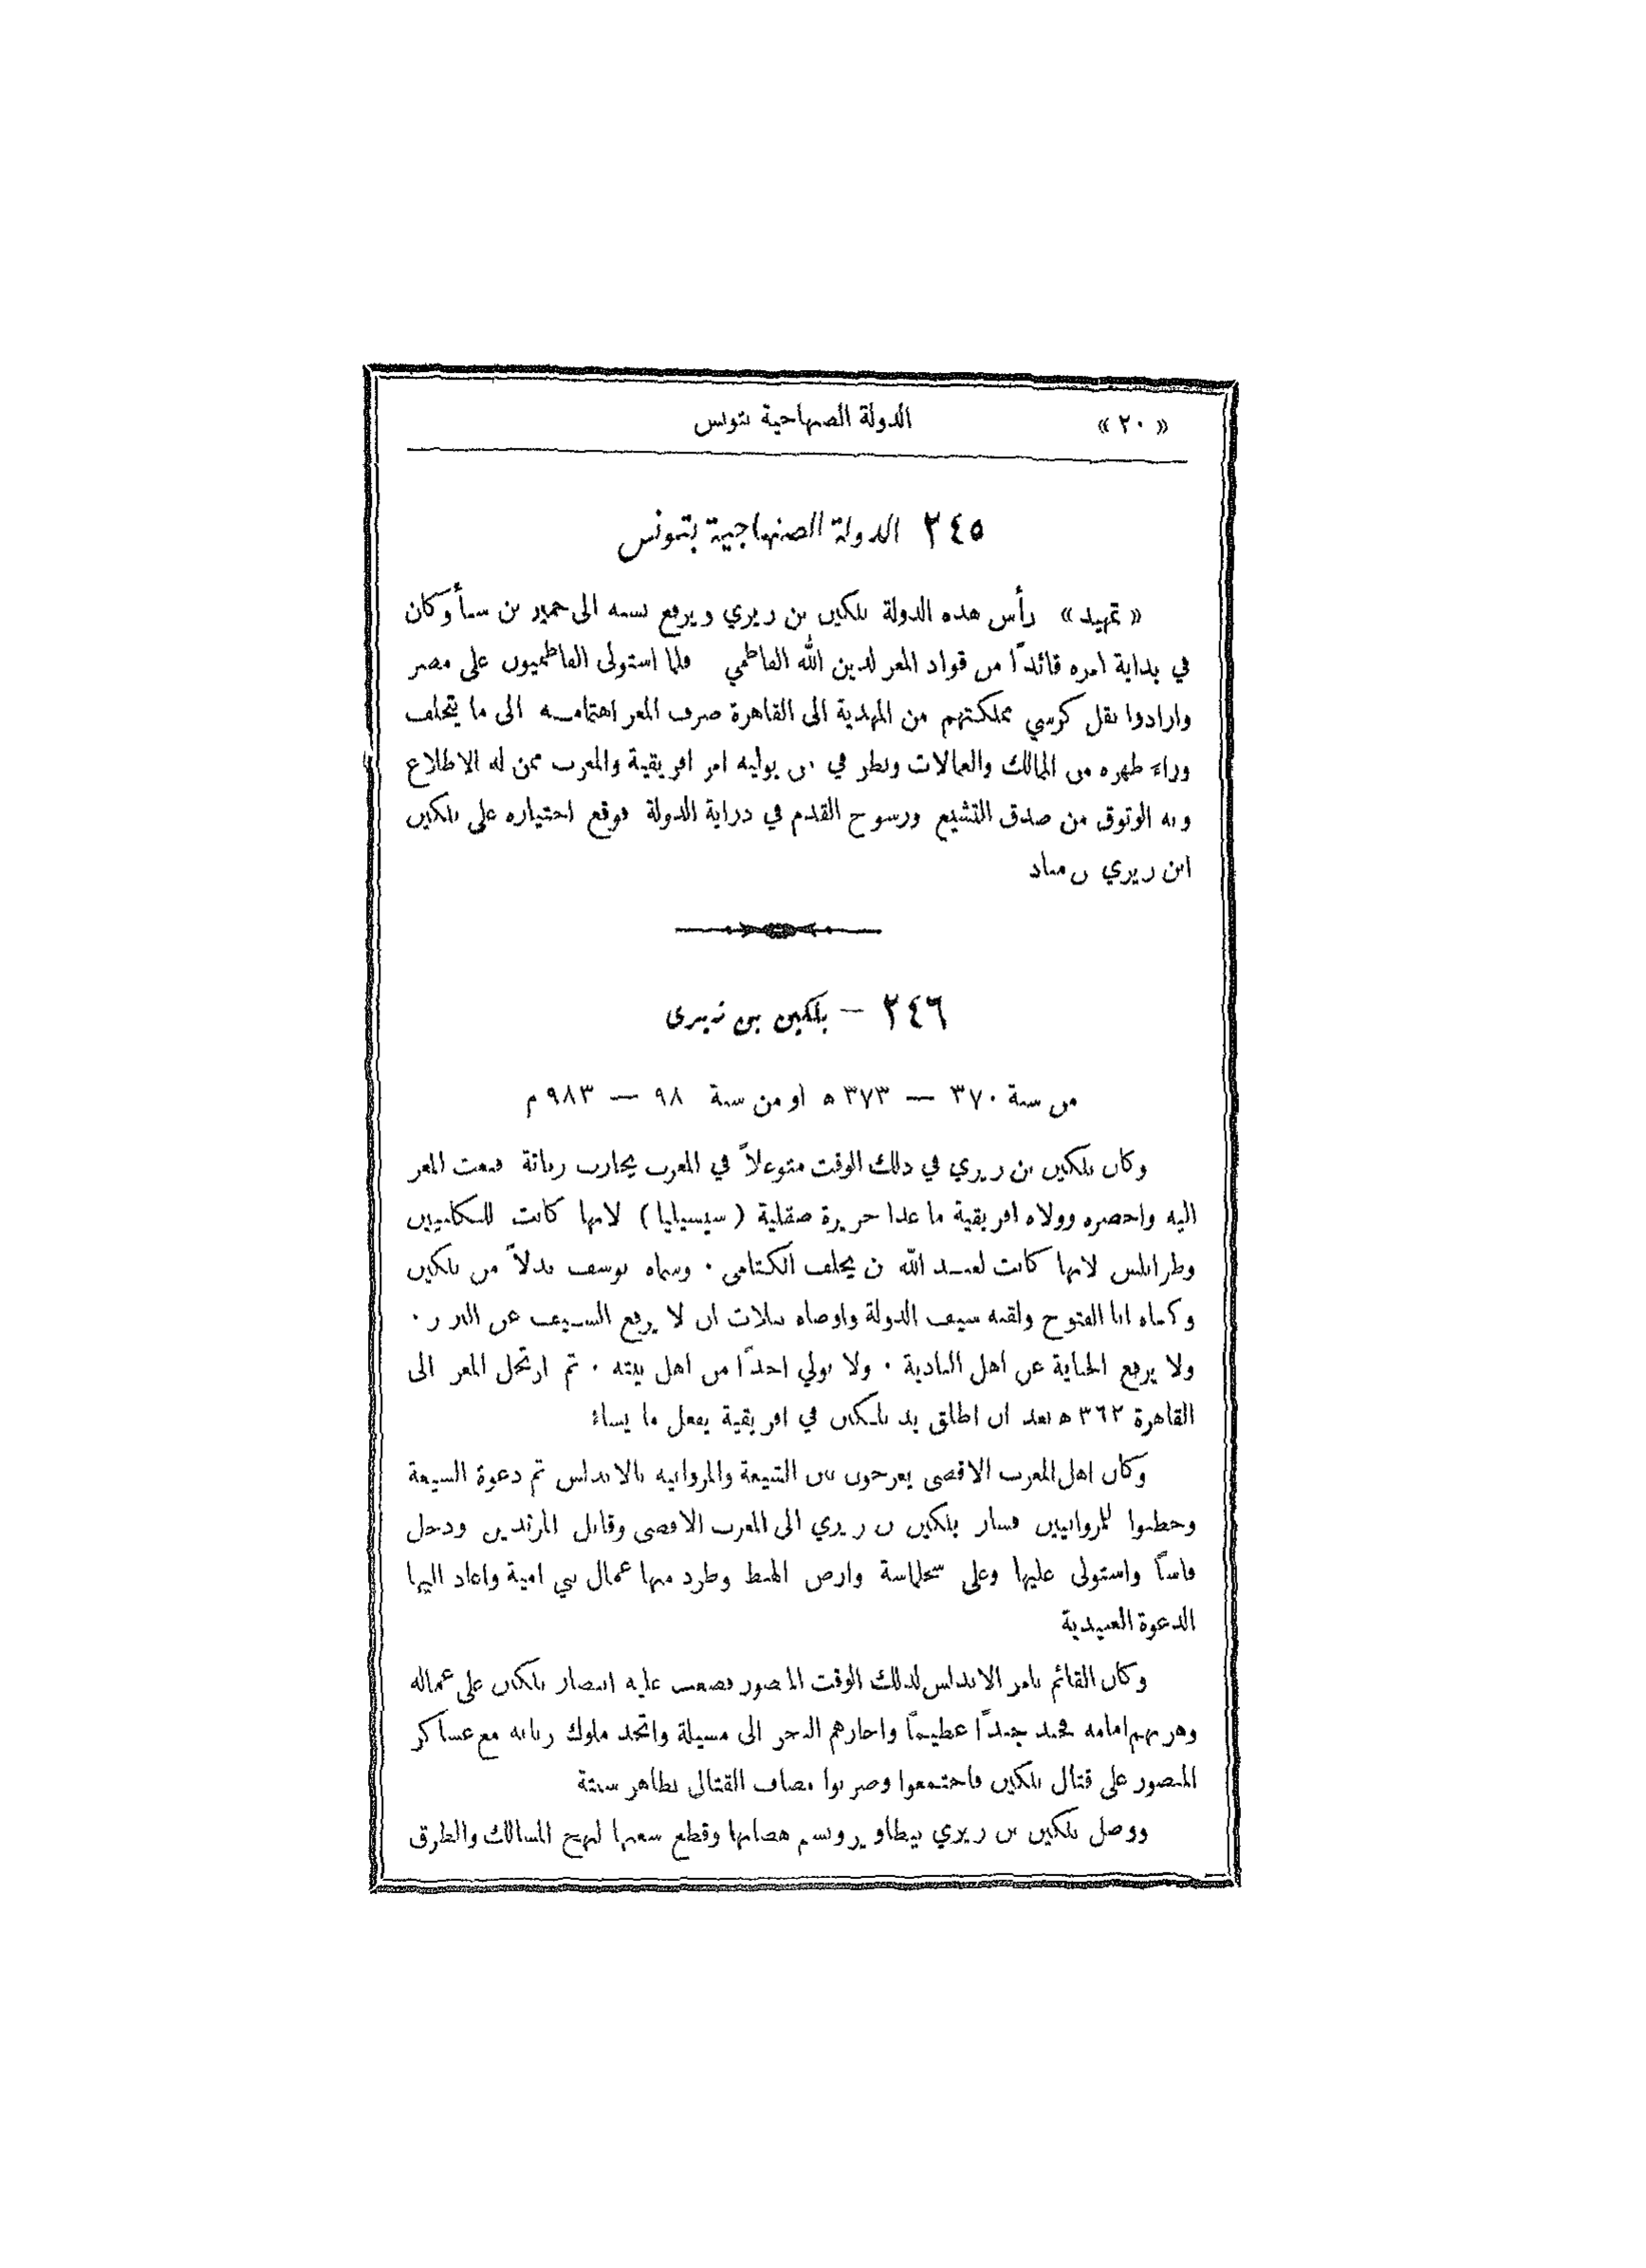 « ٢٠ » الدولة الصنهاجية بتونس
٢٤٥ الدولة الصنهاجية بتونس
« تمهيد » رأس هذه الدولة بلكين بن زيري ويرفع نسبه الى حمير بن سبأ وكان
في بداية امره قائدًا من قواد المعز لدين الله الفاطمي فلما استولى الفاطميون على مصر
وارادوا نقل كرسي مملكتهم من المهدية الى القاهرة صرف المعز اهتمامه الى ما يتخلف
وراء ظهره من الممالك والعمالات ونظر في من يوليه امر افريقية والمغرب ممن له الاطلاع
وبه الوثوق من صدق التشيع ورسوخ القدم في دراية الدولة فوقع اختياره على بلكين
ابن زيري بن مناد
٢٤٦ — بلكين بن زيرى
من سنة ٣٧٠ — ٣٧٣ ه او من سنة ٩٨ — ٩٨٣ م
وكان بلكين بن زيري في ذلك الوقت متوغلاً في المغرب يحارب زناتة فبعث المعز
اليه واحضره وولاه افريقية ما عدا جزيرة صقلية ( سيسيليا ) لانها كانت
وطرابلس لانها كانت لعبد الله بن يخلف الكتامي . وسماه يوسف بدلاً من بلكين
وكناه ابا الفتوح ولقبه سيف الدولة واوصاه بثلاث ان لا يرفع السيف عن البربر .
ولا يرفع الجباية عن اهل البادية . ولا يولي احدًا من اهل بيته . ثم ارتحل المعز الى
القاهرة ٣٦٢ ه بعد ان اطلق يد بلكين في افريقية يفعل ما يشاء
وكان اهل المغرب الاقصى الشيعة والمروانيه بالاندلس ثم دعوة الشيعة
وخطبوا للمروانيين فسار بلكين بن زيري الى المغرب الاقصى وقاتل المرتدين ودخل
فاسًا واستولى عليها وعلى سجلماسة وارض الهبط وطرد منها عمال بني امية واعاد اليها
الدعوة العبيدية
وكان القائم بامر الاندلس لذلك الوقت المنصور فصعب عليه انتصار بلكين على عماله
وهربهم امامه فجند جندًا عظيمًا واجازهم البحر الى مسيلة واتحد ملوك زناته مع عساكر
المنصور على قتال بلكين فاجتمعوا وضربوا مصاف القتال بظاهر سبتة
ووصل بلكين بن زيري وقطع لنهج المسالك والطرق